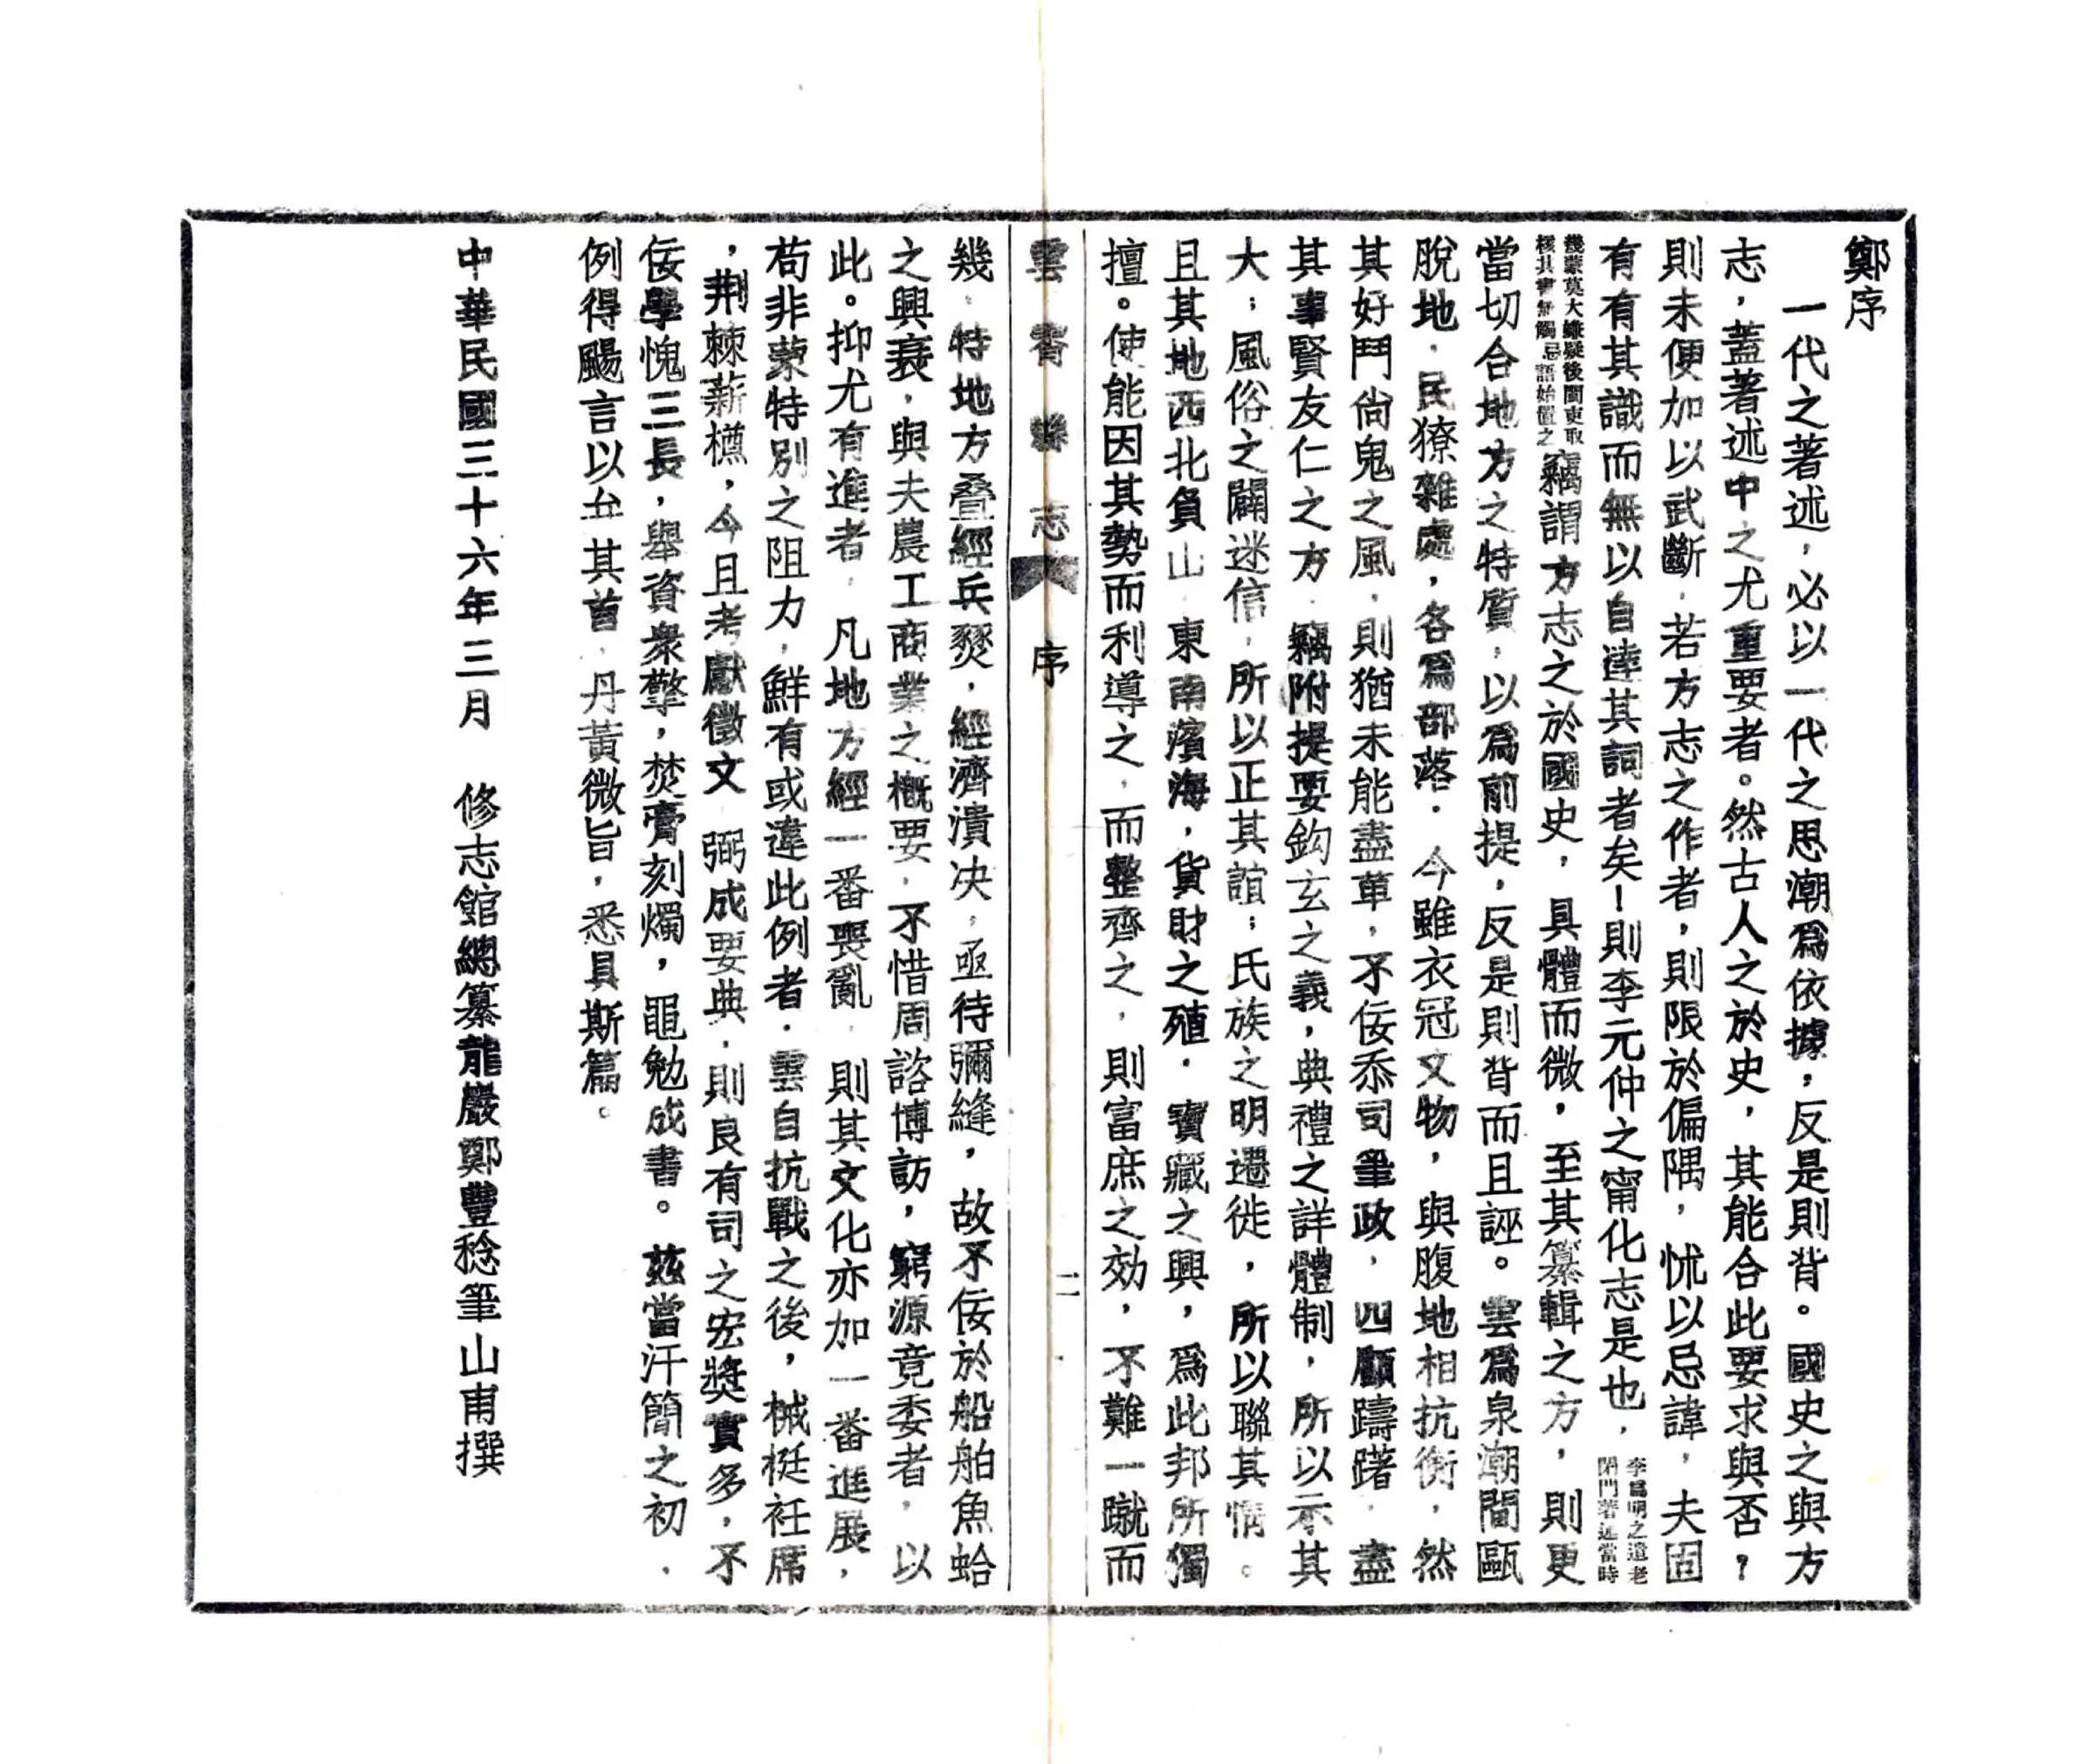 鄭序
一代之著述，必以一代之思潮爲依據，反是則背。國史之與方
志，蓋著述中之尤重要者。然古人之於史，其能合此要求與否？
則未便加以武斷，若方志之作者，則限於偏隅，怵以忌諱，夫固
有有其識而無以自達其詞者矣！則李元仲之甯化志是也，李爲明之遺老閉門著述當時
幾蒙莫大嫌疑後閩吏取核其書無觸忌語始置之竊謂方志之於國史，具體而微，至其纂輯之方，則更
當切合地方之特質，以爲前提，反是則背而且誣。雲爲泉潮間甌
脫地，民獠雜處，各爲部落．今雖衣冠文物，與腹地相抗衡，然
其好鬥尙鬼之風，則猶未能盡革，不佞忝司筆政，四顧躊躇，盡
其事賢友仁之方，竊附提要鈎玄之義，典禮之詳體制，所以示其
大；風俗之闢迷信，所以正其誼；氏族之明遷徙，所以聯其情。
且其地西北負山，東南濱海，貨財之殖．寶藏之興，爲此邦所獨
擅。使能因其勢而利導之，而整齊之，則富庶之効，不難一蹴而
雲霄縣志 序 二
幾．特地方叠經兵燹，經濟潰决，亟待彌縫，故不佞於船舶魚蛤
之興衰，與夫農工商業之概要，不惜周諮博訪，窮源竟委者，以
此。抑尤有進者，凡地方經一番喪亂，則其文化亦加一番進展，
苟非蒙特別之阻力，鮮有或違此例者．雲自抗戰之後，械梃衽席
，荆棘薪樵，今且考獻徵文，弼成要典．則良有司之宏獎實多，不
佞學愧三長，舉資衆擎，焚膏刻燭，黽勉成書。茲當汗簡之初．
例得颺言以弁其首，丹黃微旨，悉具斯篇。
中華民國三十六年三月　修志館總纂龍巖鄭豐稔筆山甫撰